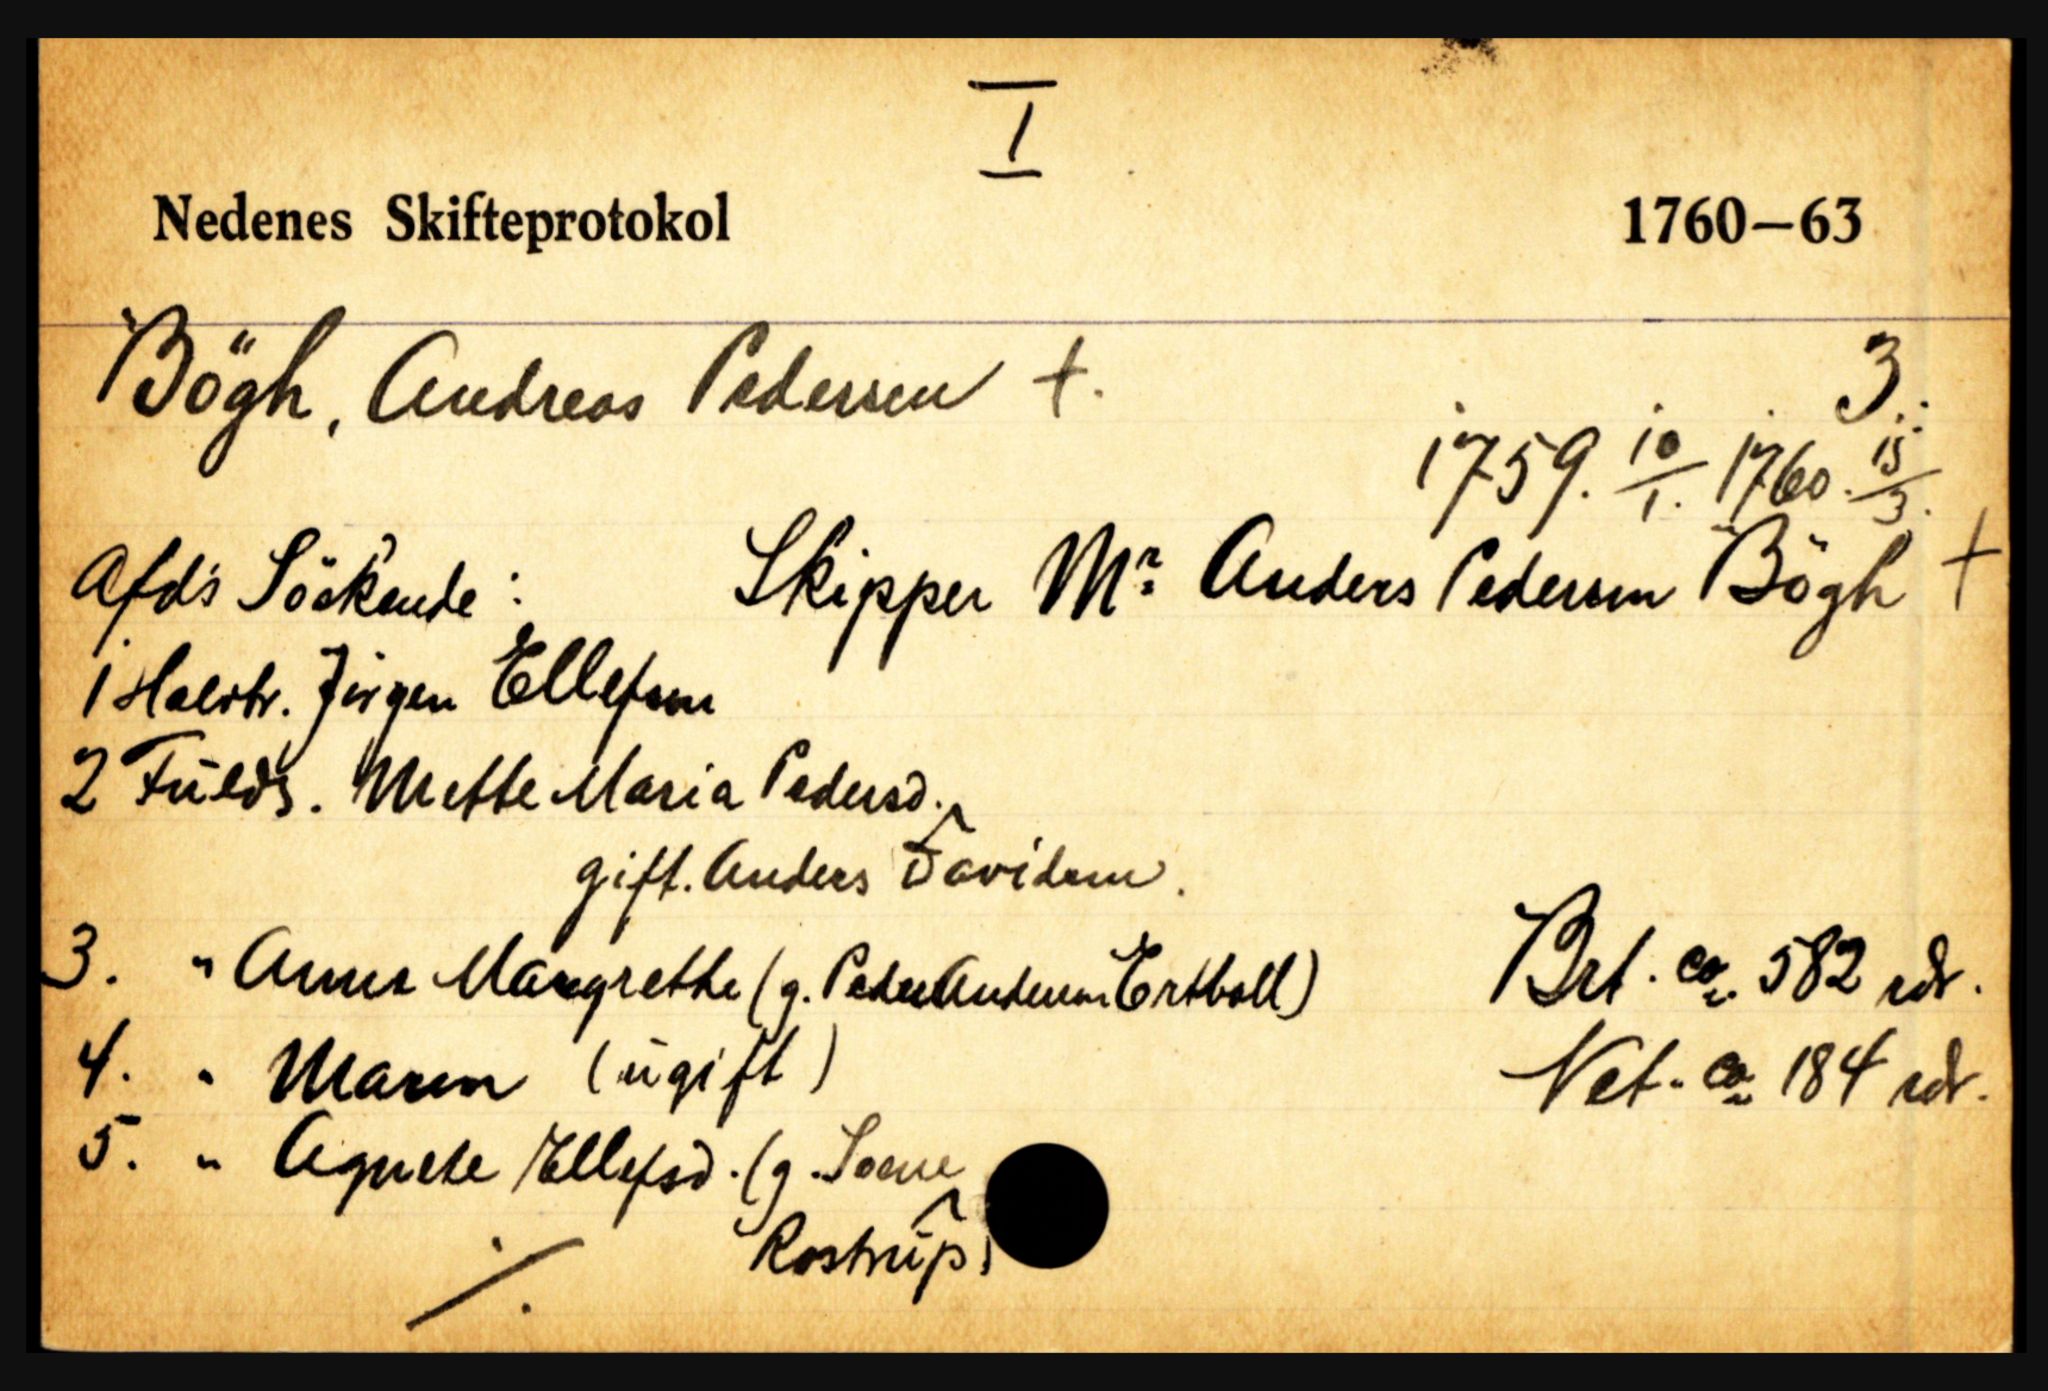 I
Nedenes Skifteprotokol 1760–63
Bögh, Andreas Pedersen †. 3.
1759. 10/1. 1760. 15/3.
Afd's Söskende: Skipper Mr: Anders Pedersen Bögh †
1 Halvbr. Jörgen Ellefsen
2 Fulds. Mette Maria Pedersd.
gift. Anders Davidsen.
3. " Anne Margrethe (g. Peder Andersen Ertboll) Brt. ca. 582 rdr.
4. " Maren (ugift) Net. ca 184 rdr.
5. " Agnete Ellefsd. (g.
Rostrup)
./.